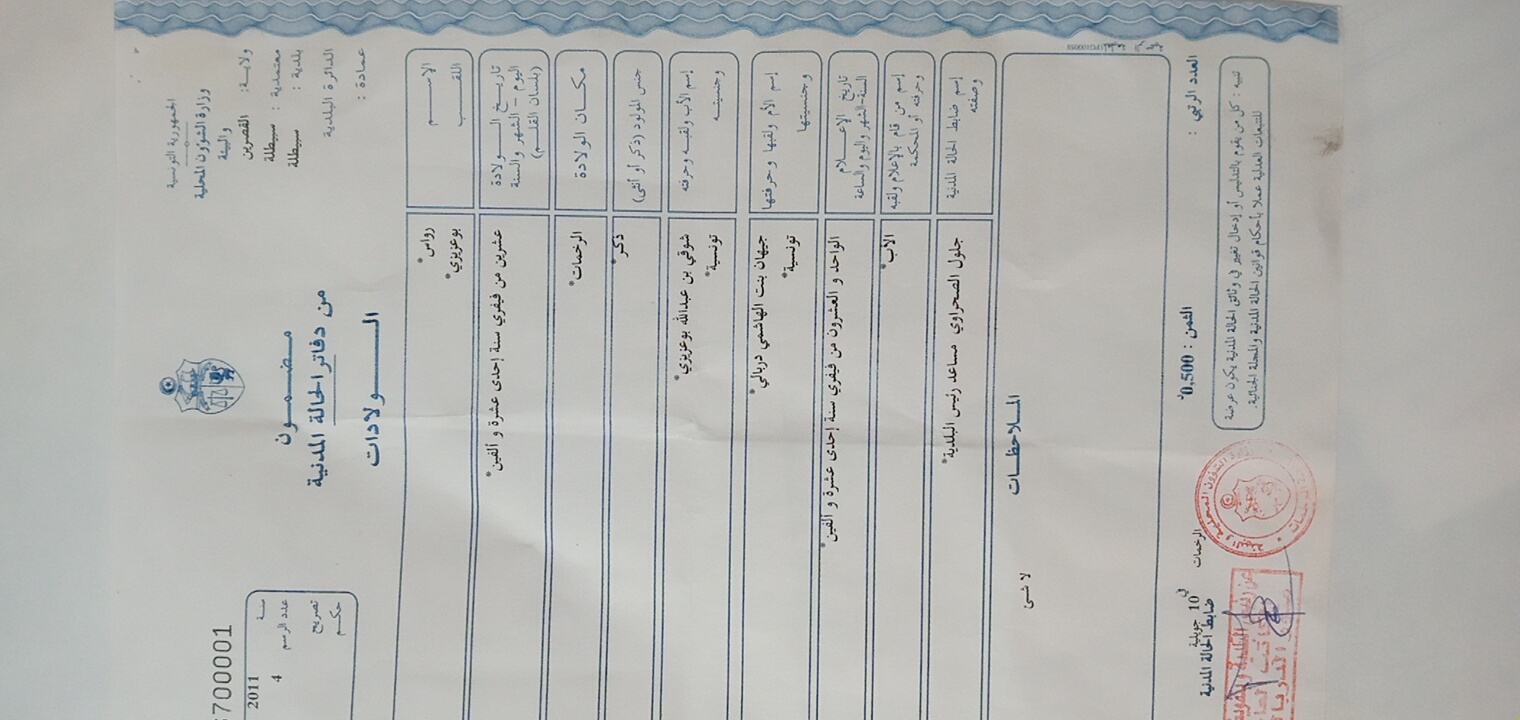 الجمهورية التونسية
وزارة الشؤون المحلية
والبيئة
ولاية: القصرين
معتمدية : سبيطلة
بلدية : سبيطلة
الدائرة البلدية
عمادة :
مضمون
من دفاتر الحالة المدنية
الولادات
700001
سنة 2011
عدد الرسم 4
تصريح
حكم
الاسم رواس*
اللقب بوعزيزي*
تاريخ الولادة
اليوم - الشهر والسنة
(بلسان القلم)
عشرين من فيفري سنة إحدى عشرة و ألفين*
مكان الولادة الرخمات*
جنس المولود (ذكر أو أنثى) ذكر*
إسم الأب ولقبه وحرفته شوقي بن عبدالله بوعزيزي*
وجنسيته تونسية*
إسم الأم ولقبها وحرفتها جيهان بنت الهاشمي دربالي*
وجنسيتها تونسية*
تاريخ الإعلام
السنة-الشهر واليوم والساعة
الواحد و العشرون من فيفري سنة إحدى عشرة و ألفين*
إسم من قام بالإعلام ولقبه
وحرفته أو المحكمة
الأب*
إسم ضابط الحالة المدنية
وصفته
جلول الصحراوي مساعد رئيس البلدية*
الملاحظات
لا شئ
العدد الرتبي :
الثمن : 0,500*
الرخمات في 10 جويلية
ضابط الحالة المدنية
تنبيه : كل من يقوم بالتدليس أو إدخال تغيير في وثائق الحالة المدنية يكون عرضة
للتتبعات العدلية عملا بأحكام قوانين الحالة المدنية والمجلة الجنائية.